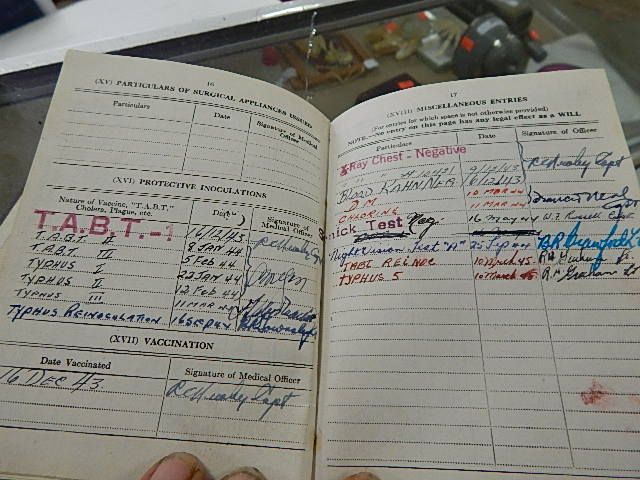 16
(XV) PARTICULARS OF SURGICAL APPLIANCES ISSUED
Particulars Date Signature of Medical Officer
(XVI) PROTECTIVE INOCULATIONS
Nature of Vaccine, "T.A.B.T." Cholera, Plague, etc. Date Signature of Medical Officer
T.A.B.T.-1 16/12/43
T.A.B.T. II 8 JAN 44
T.A.B.T. III 5 FEB 44
TYPHUS I 22 JAN 44
TYPHUS II 12 FEB 44
TYPHUS III 11 MAR 44
TYPHUS REINOCULATION 16 SEP 44
(XVII) VACCINATION
Date Vaccinated Signature of Medical Officer
16 DEC 43 Capt
17
(XVIII) MISCELLANEOUS ENTRIES
(For entries for which space is not otherwise provided)
NOTE.—No entry on this page has any legal effect as a WILL
Particulars Date Signature of Officer
X-Ray Chest - Negative
9/12/43 Capt
BLOOD KAHN NEG 8/12/43
10 MAR 44
CHLORINE 11 MAR 44 Capt
Schick Test Neg. 16 May 44 Capt
Night Vision Test "A" 25 Sep 44
TABT REINOC 10 March 45
TYPHUS 5 10 March 45 Graham